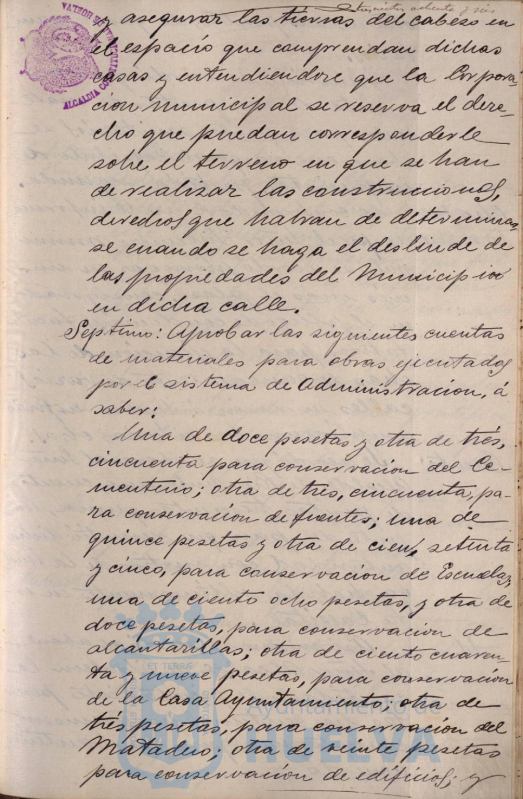 trescientos ochenta y seis
y asegurar las tierras del cabezo en
el espacio que comprendan dichas
casas y entendiendose que la Corpora-
cion municipal se reserva el dere-
cho que puedan corresponderle
sobre el terreno en que se han
de realizar las construcciones,
derechos que habran de determinar
se cuando se haga el deslinde de
las propiedades del Municipio
en dicha calle.
Septimo: Aprobar las siguientes cuentas
de materiales para obras ejecutadas
por el sistema de Administracion, á
saber:
Una de doce pesetas y otra de trés,
cincuenta para conservacion del Ce-
menterio; otra de trés, cincuenta, pa-
ra conservacion de fuentes; una de
quince pesetas y otra de cien, setenta
y cinco, para conservacion de Escuelas,
una de ciento ocho pesetas, y otra de
doce pesetas, para conservacion de
alcantarillas; otra de ciento cuaren-
ta y nueve pesetas, para conservacion
de la Casa Ayuntamiento; otra de
trés pesetas, para conservacion del
Matadero; otra de veinte pesetas
para conservacion de edificios; y
ALCALDIA CONSTITUCIONAL
HUELVA
Ayuntamiento
HUELVA